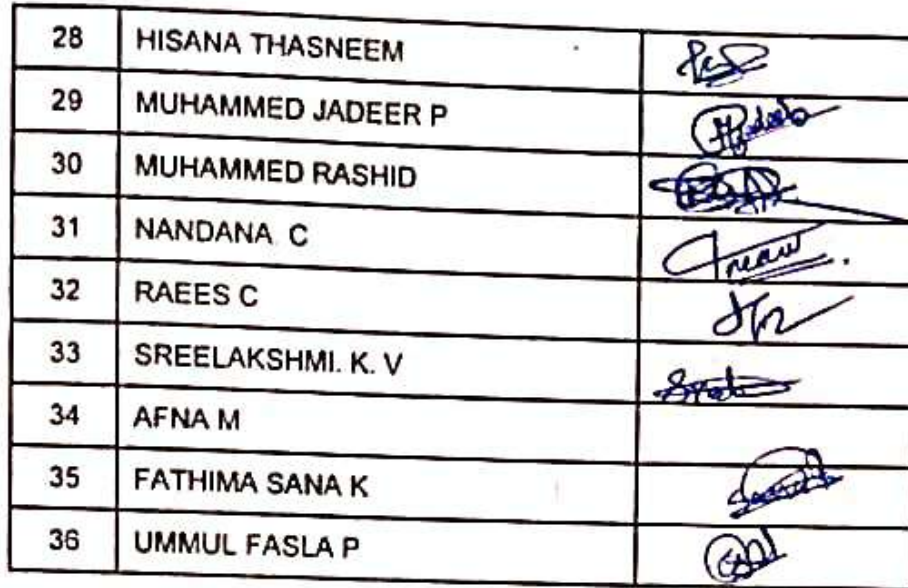 28 HISANA THASNEEM
29 MUHAMMED JADEER P
30 MUHAMMED RASHID
31 NANDANA C
32 RAEES C
33 SREELAKSHMI. K. V
34 AFNA M
35 FATHIMA SANA K
36 UMMUL FASLA P